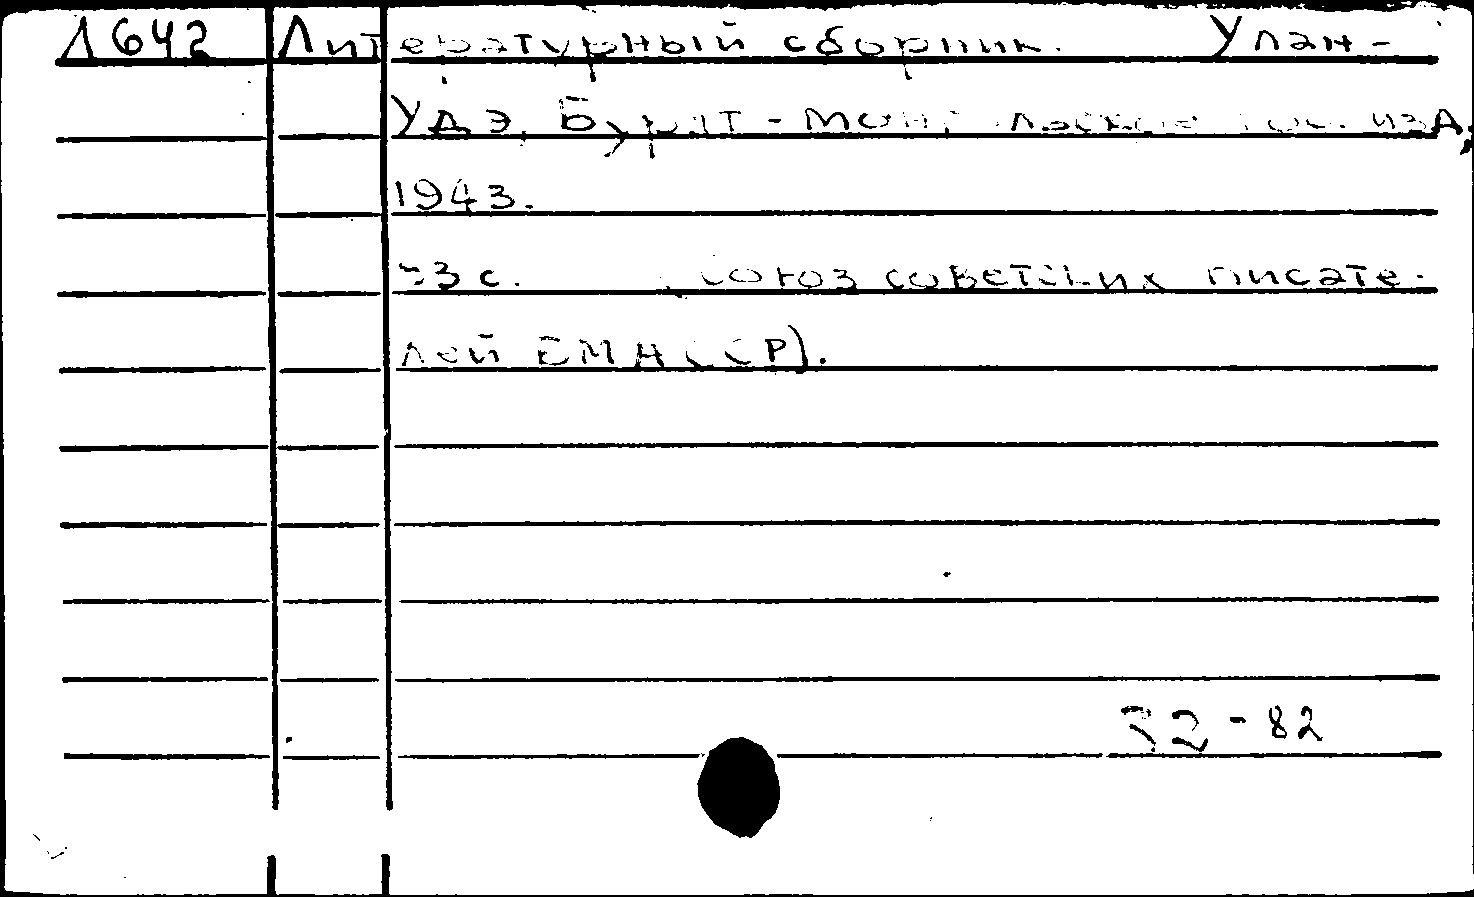 Л642 Литературный сборник. Улан-
Удэ, Бурят-Монгольское гос. изд,
1943.
3 с. (Союз советских писате-
лей БМАССР).
32-82